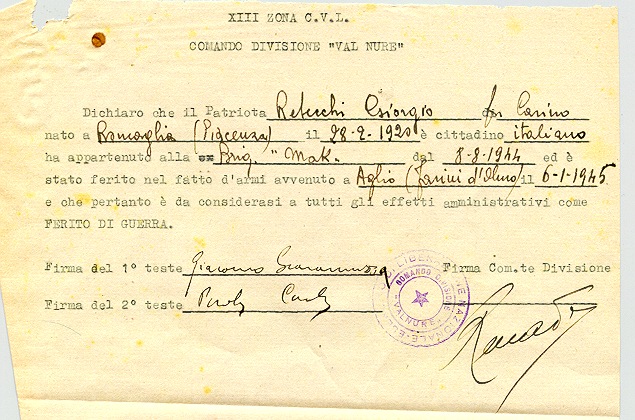 XIII ZONA C.V.L.
COMANDO DIVISIONE "VAL NURE"
Dichiaro che il Patriota Retecchi Giorgio fu
nato a Roncaglia (Piacenza) il 28-2-1920 è cittadino italiano
ha appartenuto alla Brig. "Mak. dal 8-8-1944 ed è
stato ferito nel fatto d'armi avvenuto a Aglio (Farini d'Olmo) il 6-1-1945
e che pertanto è da considerasi a tutti gli effetti amministrativi come
FERITO DI GUERRA.
Firma del 1° teste Giacomo
Firma Com.te Divisione
Firma del 2° teste
COMANDO DIVISIONE
VALNURE